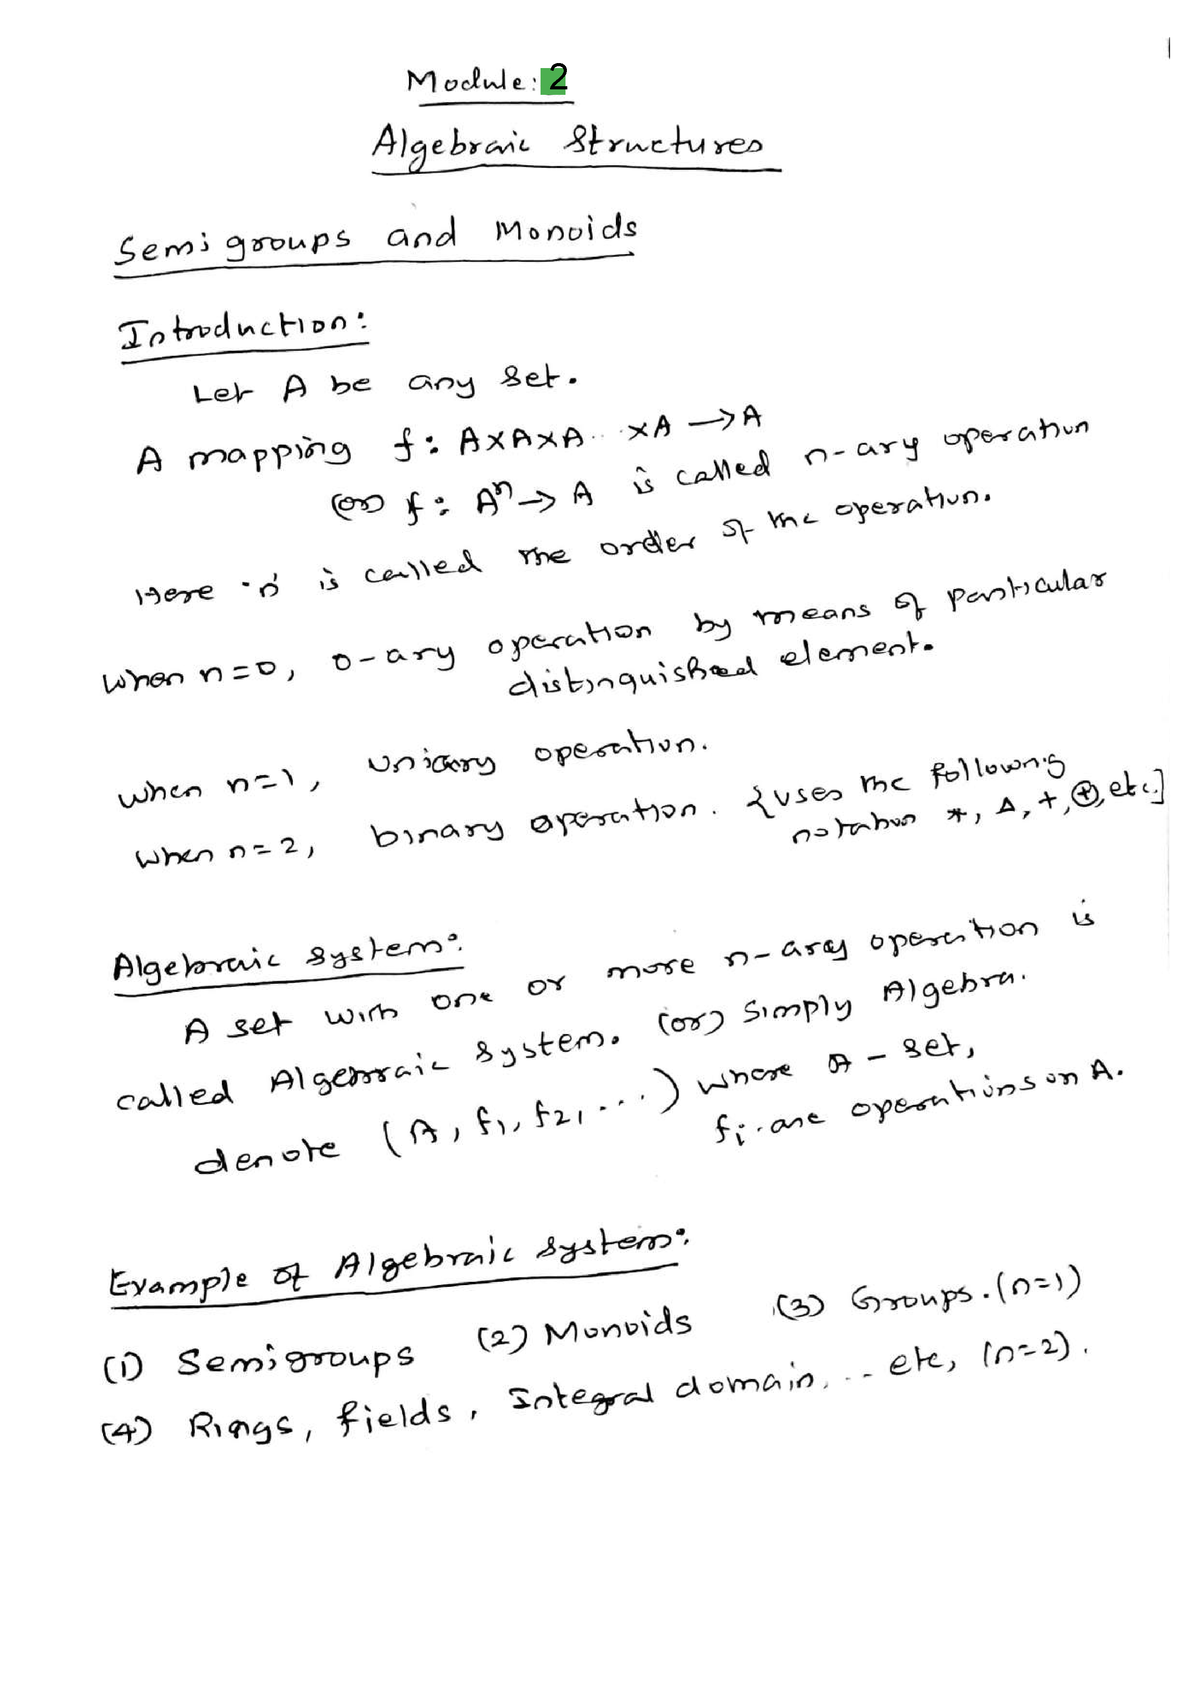 Module: 2
Algebraic Structures
Semigroups and Monoids
Introduction:
Let A be any set.
A mapping f: A×A×A.. ×A → A
(or) f: Aⁿ → A is called n-ary operation
Here 'n' is called the order of the operation.
When n=0, 0-ary operation by means of particular
distinguished element.
When n=1, unary operation.
When n=2, binary operation. {uses the following
notation *, Δ, +, ⊕, etc.]
Algebraic System:
A set with one or more n-ary operation is
called Algebraic System. (or) Simply Algebra.
denote (A, f₁, f₂, ...) where A - set,
fᵢ are operations on A.
Example of Algebraic System:
(1) Semigroups (2) Monoids (3) Groups. (n=1)
(4) Rings, fields, Integral domain, .. etc, (n=2).